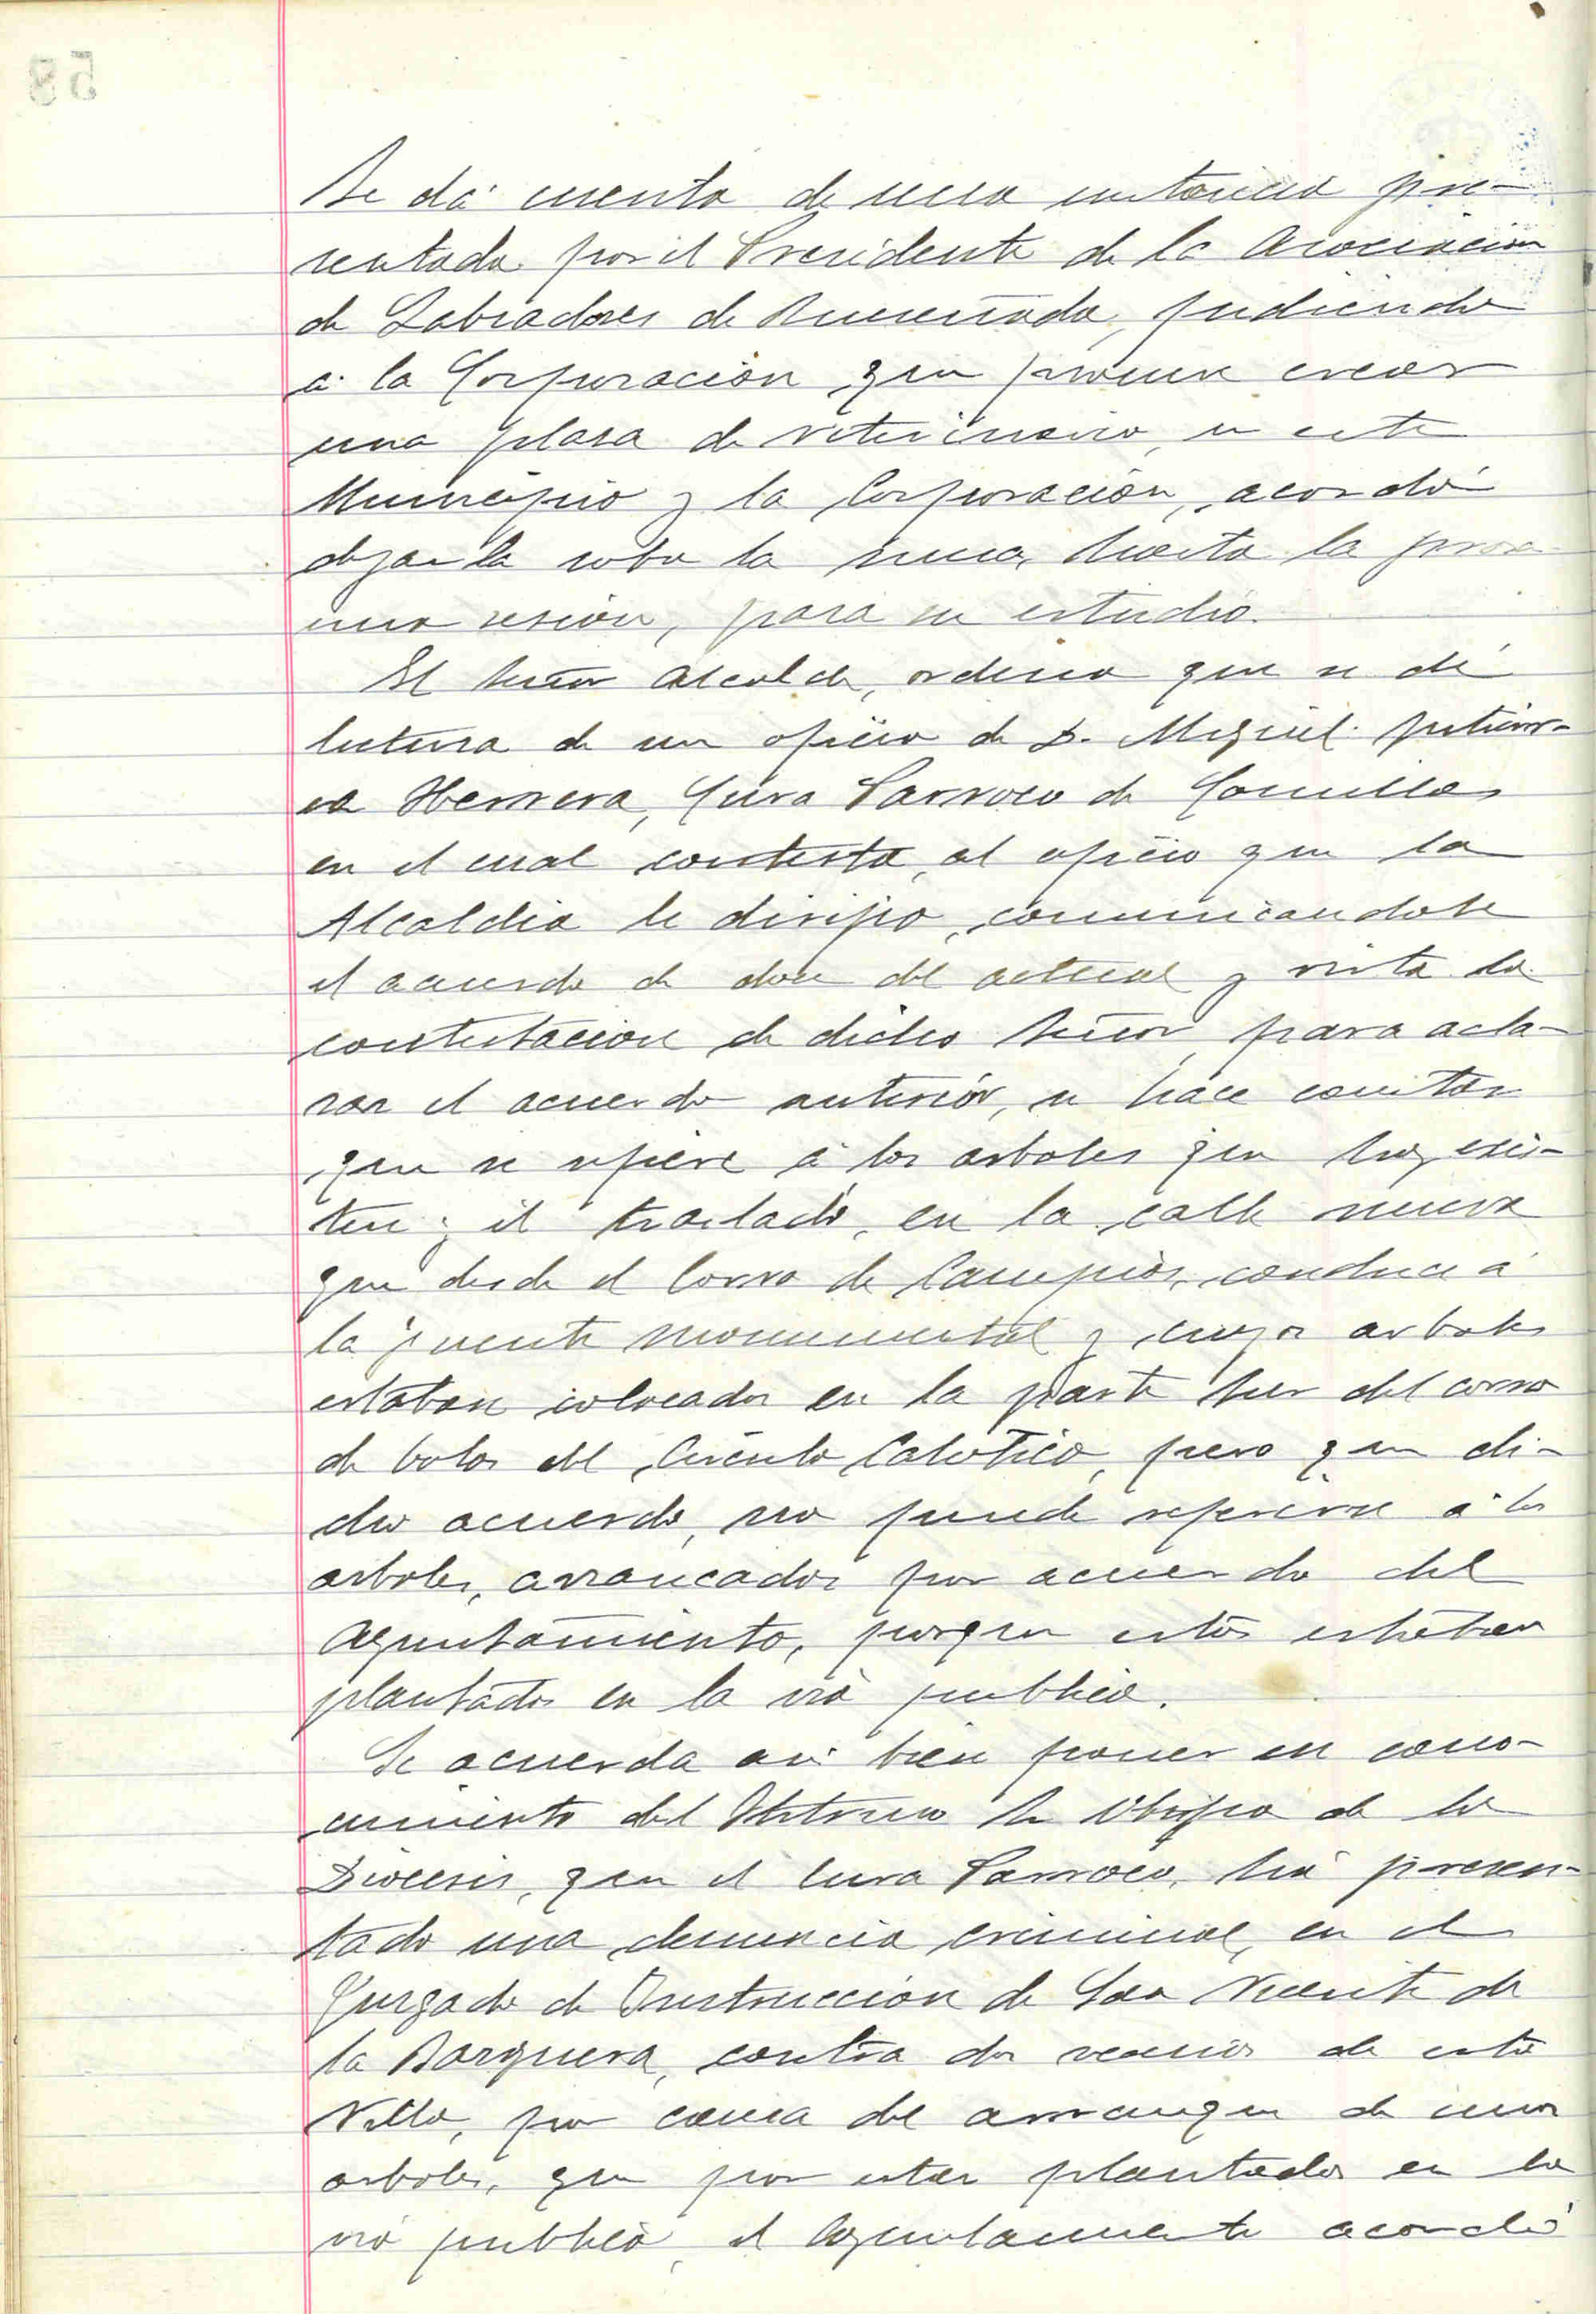 Se dá cuenta de una instancia pre-
sentada por el Presidente de la Asociación
de Labradores de Ruiseñada, pidiendo
á la Corporación que procure crear
una plaza de veterinario, en este
Municipio y la Corporación, acordó
dejarla sobre la mesa, hasta la proxi
ma sesion, para su estudio.
El señor Alcalde, ordena que se dé
lectura de un oficio de D. Miguel Gutierr-
ez Herrera, Cura Parroco de Comillas,
en el cual contesta, al oficio que la
Alcaldia le dirijio, comunicandole
el acuerdo de doce del actual y vista la
contestacion de dicho señor, para acla-
rar el acuerdo anterior, se hace constar
que se refiere á los arboles que hoy exis-
ten; el traslado, en la calle nueva
que desde el Corro de Campios, conduce á
la fuente monumental y cuyos arboles
estaban colocados en la parte Sur del corro
de bolos del Circulo Catolico, pero que di-
cho acuerdo, no puede referirse á los
arboles, arrancados por acuerdo del
Ayuntamiento, porque estos estaban
plantados en la via publica.
Se acuerda asi bien poner en cono-
cimiento del Iltrmo Sr Obispo de la
Diocesis, que el Cura Parroco, há presen-
tado una denuncia criminal, en el
Juzgado de Instrucción de San Vicente de
la Barquera, contra dos vecinos de esta
Villa, por causa del arranque de unos
arboles, que por estar plantados en la
via publica, el Ayuntamiento acordó